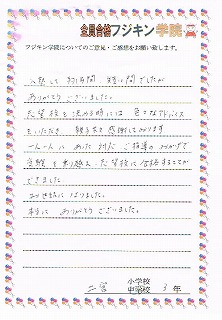 全員合格フジキン学院
フジキン学院についてのご意見・ご感想をお願い致します。
入塾して約1年間、短い間でしたが
ありがとうございました。
志望校を決める時には 色々なアドバイス
をいただき 親子共々感謝しております
一人一人に あった ご指導のおかげで
受験を乗り越え 志望校に合格することが
できました。
お世話になりました。
本当に ありがとうございました。
二宮 小学校
中学校 3 年